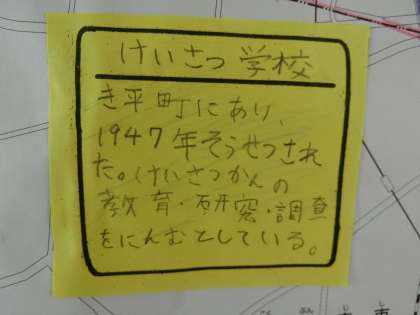 けいさつ学校
き平町にあり、
1947年そうせつされ
た。けいさつかんの
教育・研究・調査
をにんむとしている。